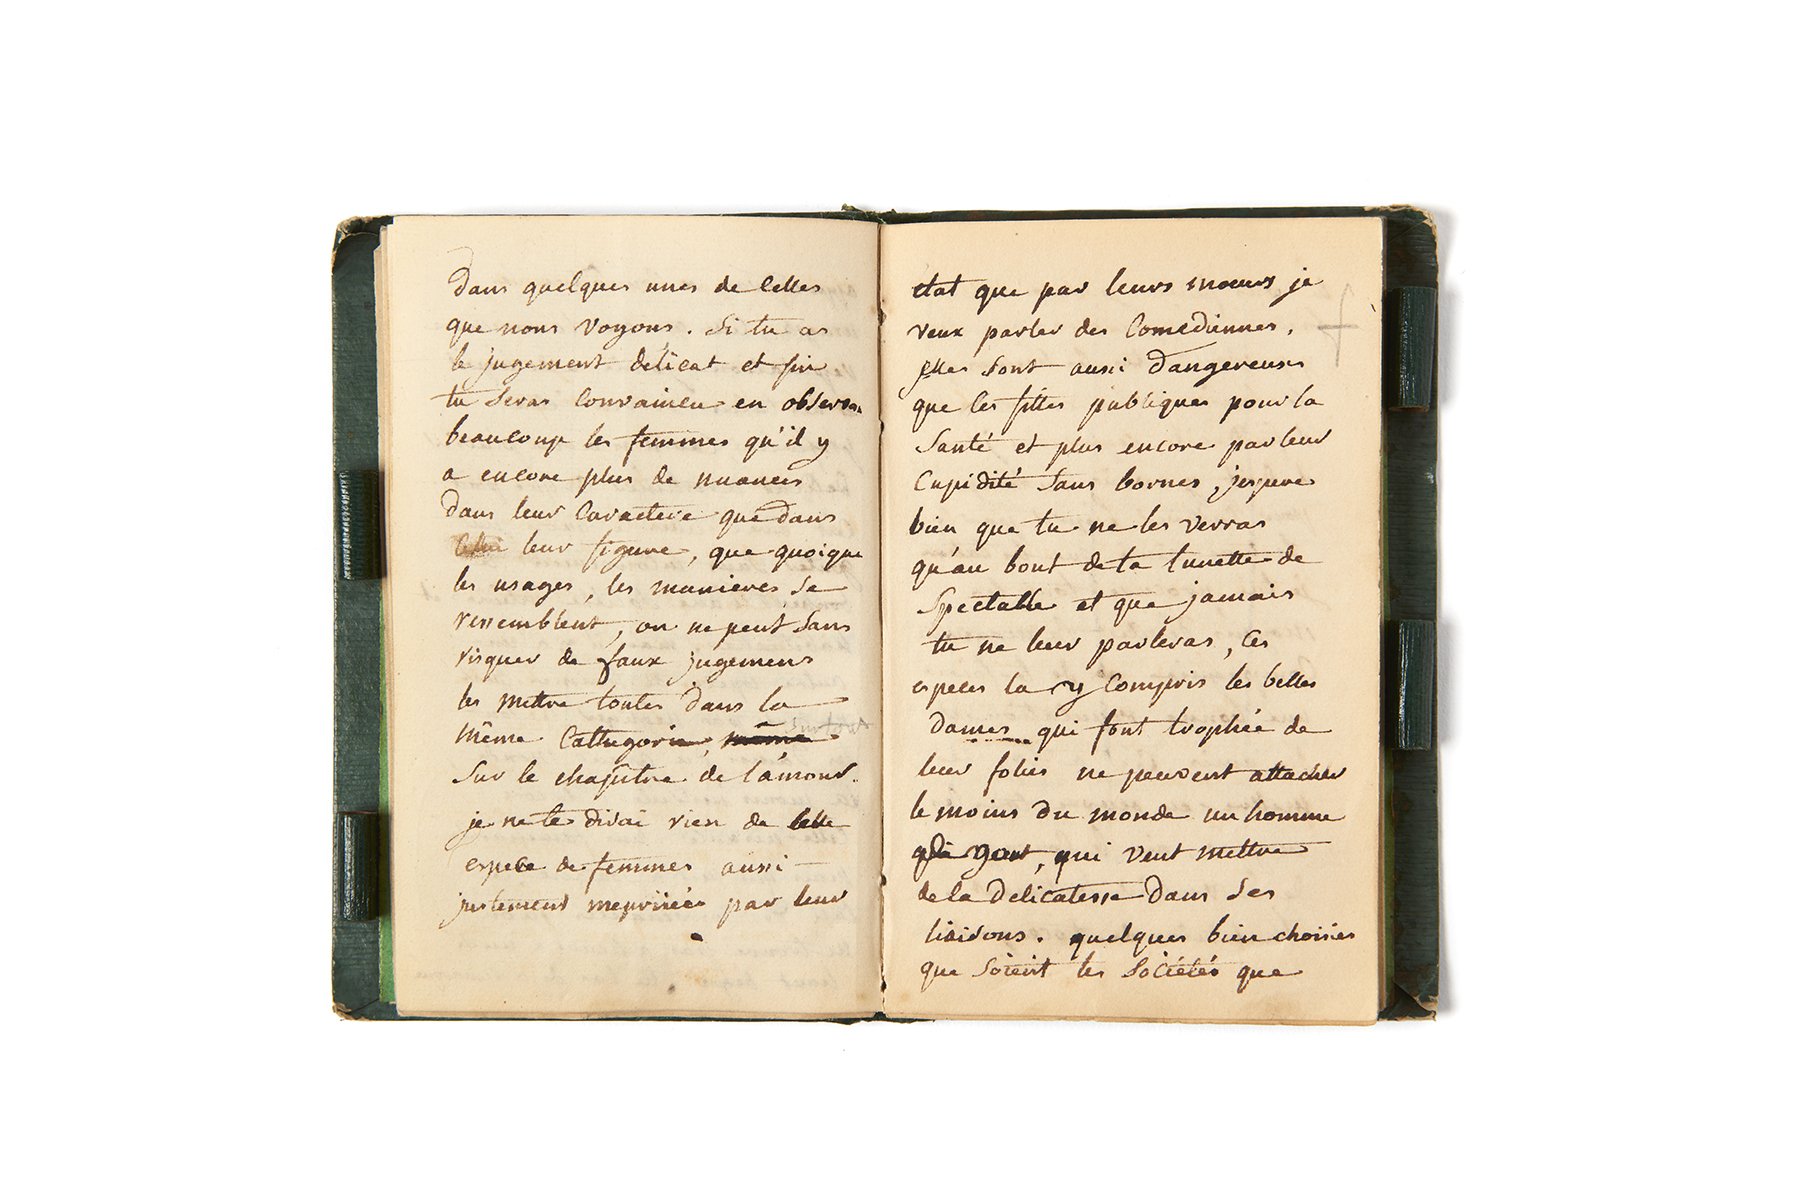 dans quelques unes de celles
que nous voyons. Si tu as
le jugement délicat et fin
tu seras convaincu en observan
beaucoup les femmes qu'il y
a encore plus de nuances
dans leur caractere que dans
leur figure, que quoique
les usages, les manieres se
ressemblent, on ne peut sans
risquer de faux jugemens
les mettre toutes dans la
même cathegorie, même
sur le chapitre de l'amour.
je ne te dirai rien de celle
espece de femmes aussi
justement meprisées par leur
état que par leurs moeurs je
veux parler des comediennes.
elles sont aussi dangereuses
que les filles publiques pour la
santé et plus encore par leur
cupidité sans bornes, j'espere
bien que tu ne les verras
qu'au bout de ta lunette de
spectacle et que jamais
tu ne leur parleras, ces
especes la y compris les belles
dames qui font trophée de
leur folies ne peuvent attacher
le moins du monde un homme
de gout, qui veut mettre
de la delicatesse dans ses
liaisons. quelques bien choisies
que soient les sociétés que